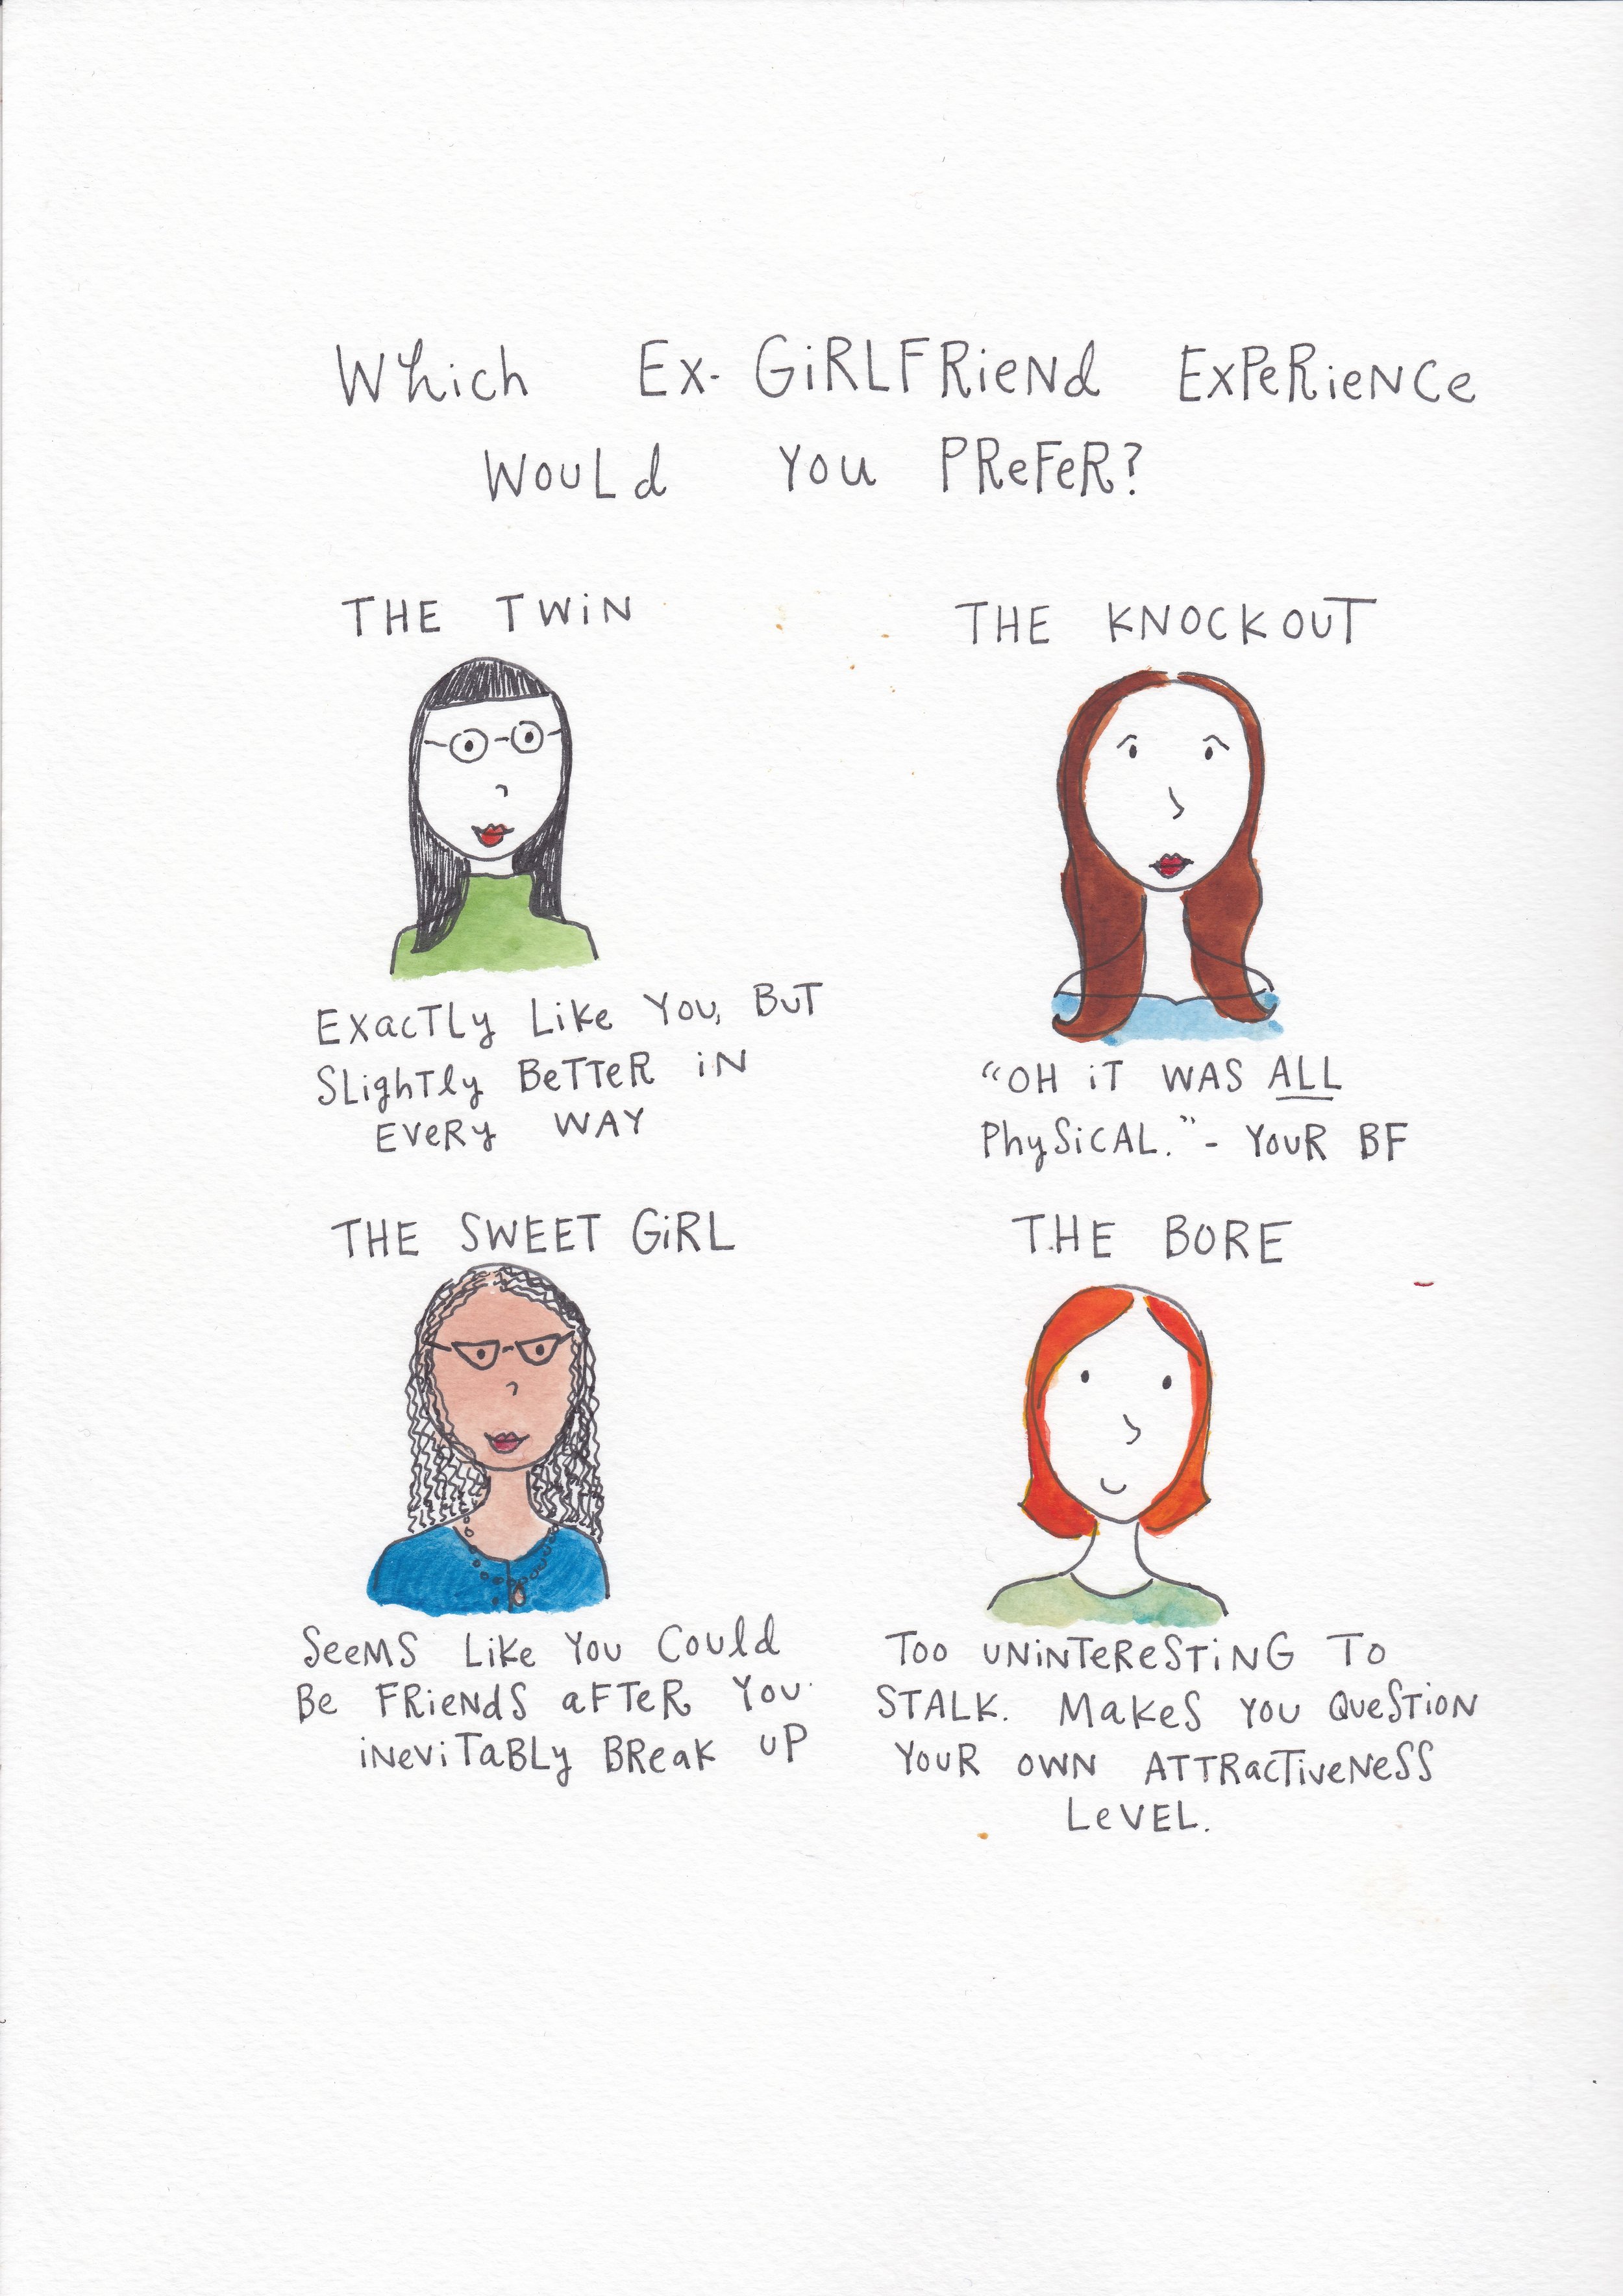 Which Ex-GiRLFRieNd ExPeRieNCe
WouLd You PReFeR?
THE TWiN
ExacTLy Like You, BuT
SLighTly BeTTeR iN
EVeRy WAY
THE KNOCKOUT
"OH iT WAS ALL
PhySiCAL." - YouR BF
THE SWEET GiRL
SeeMS Like You Could
Be FRieNdS aFTeR You
iNeviTaBLy BReaK uP
THE BORE
Too uNiNTeReSTiNG To
STALK. MakeS You QueSTioN
YouR owN ATTRacTiveNeSS
LeVEL.